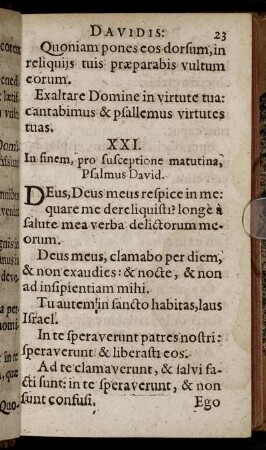 DAVIDIS: 23
Quoniam pones eos dorsum, in
reliquijs tuis præparabis vultum
eorum.
Exaltare Domine in virtute tua:
cantabimus & psallemus virtutes
tuas.
XXI.
In finem, pro susceptione matutina,
Psalmus David.
DEus, Deus meus respice in me:
quare me dereliquisti? longè à
salute mea verba delictorum me-
orum.
Deus meus, clamabo per diem,
& non exaudies: & nocte, & non
ad insipientiam mihi.
Tu autem in sancto habitas, laus
Israel.
In te speraverunt patres nostri:
speraverunt & liberasti eos.
Ad te clamaverunt, & salvi fa-
cti sunt: in te speraverunt, & non
sunt confusi. Ego